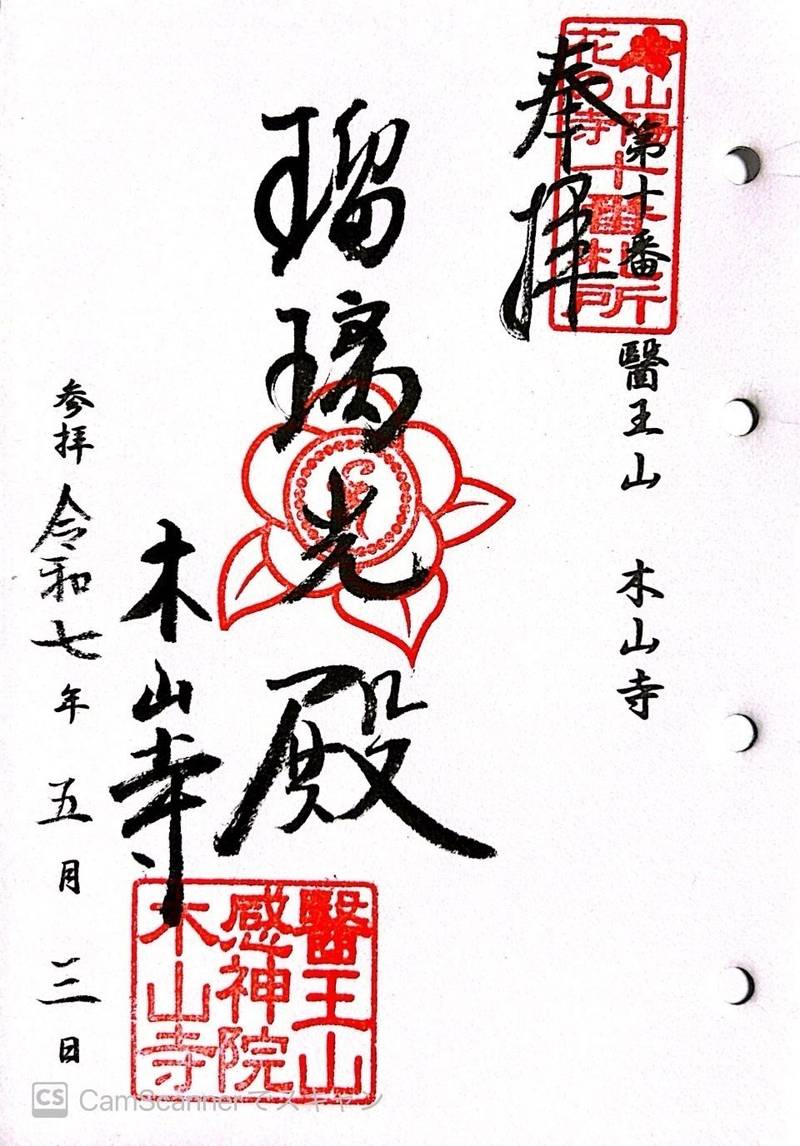 山陽
花の寺
第十番 醫王山 木山寺
奉拝
瑠璃光殿
木山寺
参拝 令和七年 五月 三日
醫王山
感神院
木山寺
CS CamScanner でスキャン